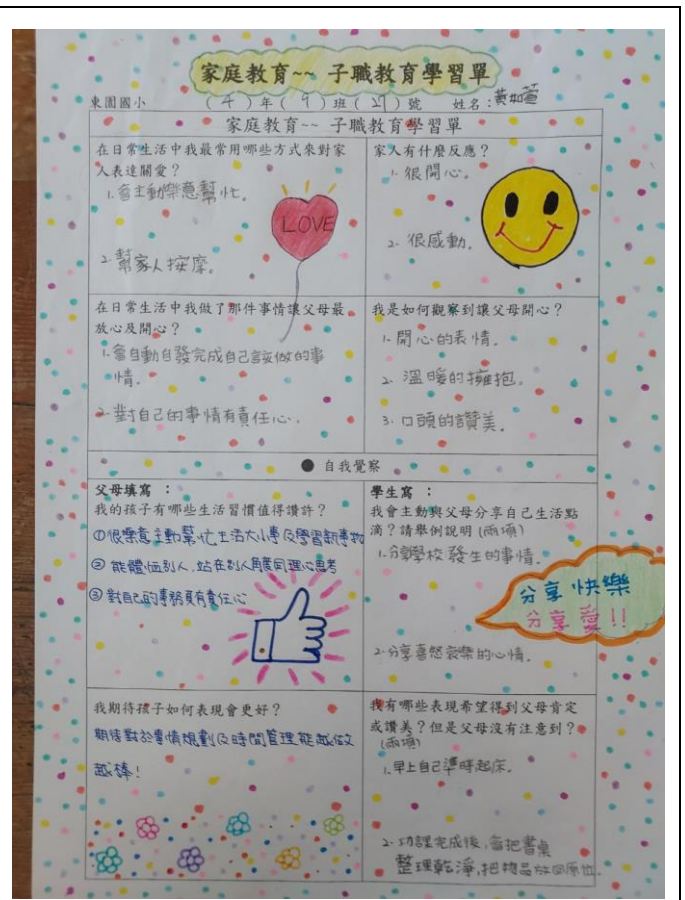 家庭教育~~ 子職教育學習單
東園國小 (4)年(9)班(21)號 姓名：黃如萱
家庭教育~~ 子職教育學習單
在日常生活中我最常用哪些方式來對家
人表達關愛？
1.會主動樂意幫忙。
LOVE
2.幫家人按摩。
家人有什麼反應？
1.很開心。
2.很感動。
在日常生活中我做了那件事情讓父母最
放心及開心？
1.會自動自發完成自己該做的事
情。
2.對自己的事情有責任心。
我是如何觀察到讓父母開心？
1.開心的表情。
2.溫暖的擁抱。
3.口頭的讚美。
● 自我覺察
父母填寫：
我的孩子有哪些生活習慣值得讚許？
①很樂意主動幫忙生活大小事及學習新事物
②能體恤別人,站在別人角度同理心思考
③對自己的事務更有責任心
學生寫：
我會主動與父母分享自己生活點
滴？請舉例說明(兩項)
1.分享學校發生的事情。
分享快樂
分享愛!!
2.分享喜怒哀樂的心情。
我期待孩子如何表現會更好？
期待對於事情規劃及時間管理能越做
越棒！
我有哪些表現希望得到父母肯定
或讚美？但是父母沒有注意到？
(兩項)
1.早上自己準時起床。
2.功課完成後,會把書桌
整理乾淨,把物品放回原位。